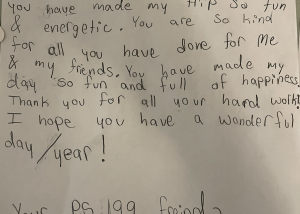 you have made my trip so fun
& energetic. You are so kind
for all you have done for me
& my friends. You have made my
day so fun and full of happiness.
Thank you for all your hard work!
I hope you have a wonderful
day/year!
Your PS 199 friend